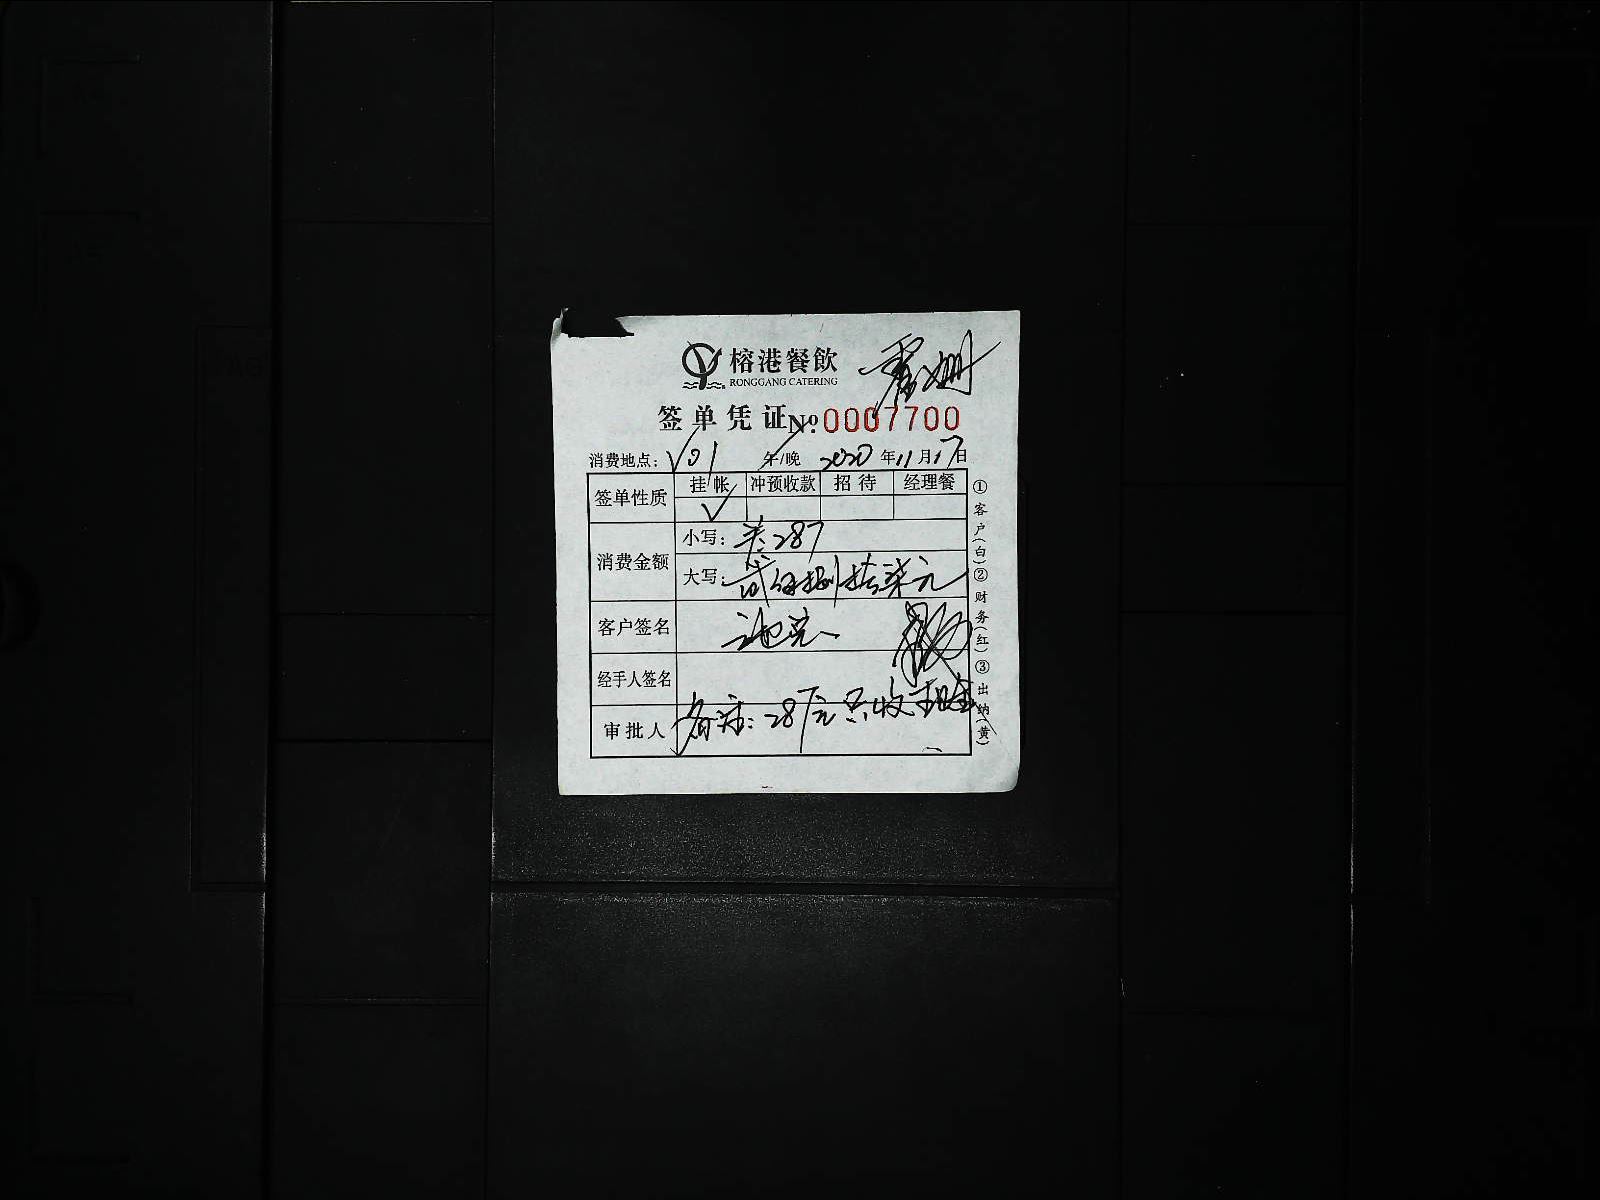 榕港餐飲
RONGGANG CATERING
签单凭证 № 0007700
消费地点: V01 午/晚 2020年11月17日
签单性质 挂帐 冲预收款 招待 经理餐
✓
消费金额 小写: 287
大写: 贰佰捌拾柒元
客户签名
经手人签名
审批人 备注: 287元只收现金
①客户(白)②财务(红)③出纳(黄)